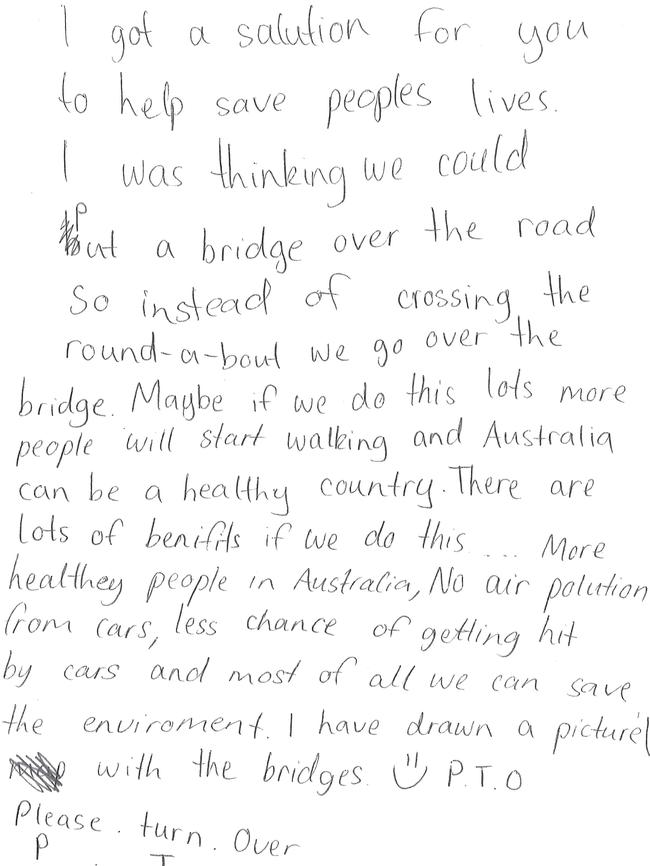 I got a salution for you
to help save peoples lives.
I was thinking we could
Put a bridge over the road
So instead of crossing the
round-a-bout we go over the
bridge. Maybe if we do this lots more
people will start walking and Australia
can be a healthy country. There are
lots of benifits if we do this .... More
healthey people in Australia, No air polution
from cars, less chance of getting hit
by cars and most of all we can save
the enviroment. I have drawn a picture
with the bridges. P.T.O
Please. turn. Over
P T